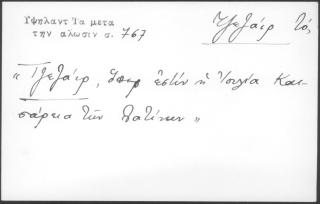 Ὑψηλαντ Τα μετα
την αλωσιν σ. 767
Τζεζαίρ τό,
« Τζεζαίρ, ὅπερ ἐστίν ἡ Ἰουλία Και-
σάρεια τῶν Λατίνων »